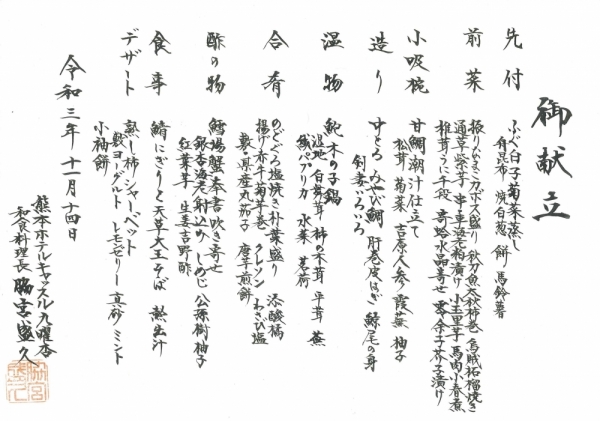 御献立
先付
ふぐ白子菊菜蒸し
有昆布 焼白葱 餅 馬鈴薯
前菜
振りいちじく刀禾火盛り 秋刀魚大秋柿巻 烏賊柘榴焼き
通草釜芋 串車海老粕漬け 小玉里芋 馬肉小春煮
椎茸うに千段 寄蛤水晶寄せ 零余子芥子漬け
小吸椀
甘鯛潮汁仕立て
松茸 菊菜 吉原人参 霞蕪 柚子
造り
中とろ みやび鯛 肝巻皮はぎ 鱘尾の身
剣妻いろいろ
温物
鮑木の子鍋
湿地 白舞茸 柿の木茸 平茸 蕪
焼パプリカ 水菜
合肴
のどぐろ塩焼き朴葉盛り 添酸橘
揚げ赤牛菊芋巻 クレソン わさび塩
敷・県産丸茄子 唐芋煎餅
酢の物
鱈場蟹奉書吹き寄せ
銀杏海老 射込め しめじ 公孫樹柚子
紅葉芋 生姜吉野酢
食事
鯖にぎりと天草大王そば 熱出汁
デザート
熟し柿シャーベット
敷ヨーグルト レモンゼリー 真砂ミント
小袖餅
令和三年 十一月十四日
熊本ホテルキャッスル九曜杏
和食料理長 脇宮盛久